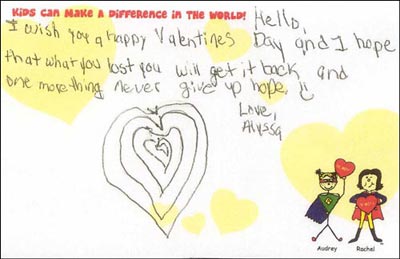 KIDS CAN MAKE A DIFFERENCE IN THE WORLD!
Hello,
I wish you a happy Valentines Day and I hope
that what you lost you will get it back and
one more thing never give up hope.
Love,
Alyssa
Audrey Rachel